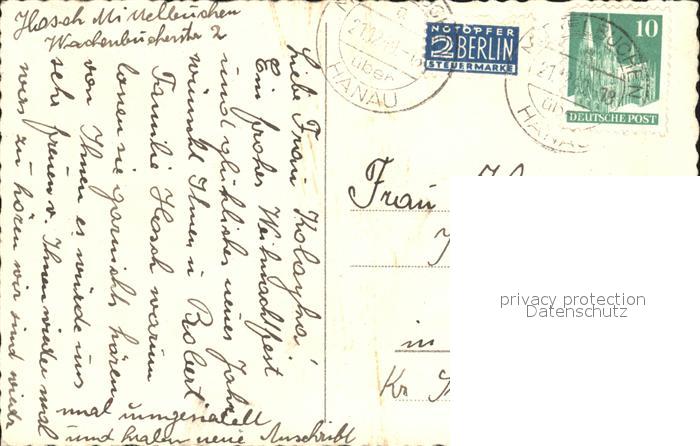 Hosch Mittelbuchen
Wachenbucherstr 2
Liebe Frau
Ein frohes Weihnachtfest
und glückliches neues Jahr
wünscht Ihnen u. Robert
Familie Hosch warum
lassen sie garnicht hören
von Ihnen es würde uns
sehr freuen v. Ihnen wieder mal
was zu hören wir sind
mal umgesiedelt
und haben neue Anschrift
NOTOPFER
2 BERLIN
STEUERMARKE
über
HANAU
10
DEUTSCHE POST
HANAU
Frau
in
Kr
privacy protection
Datenschutz